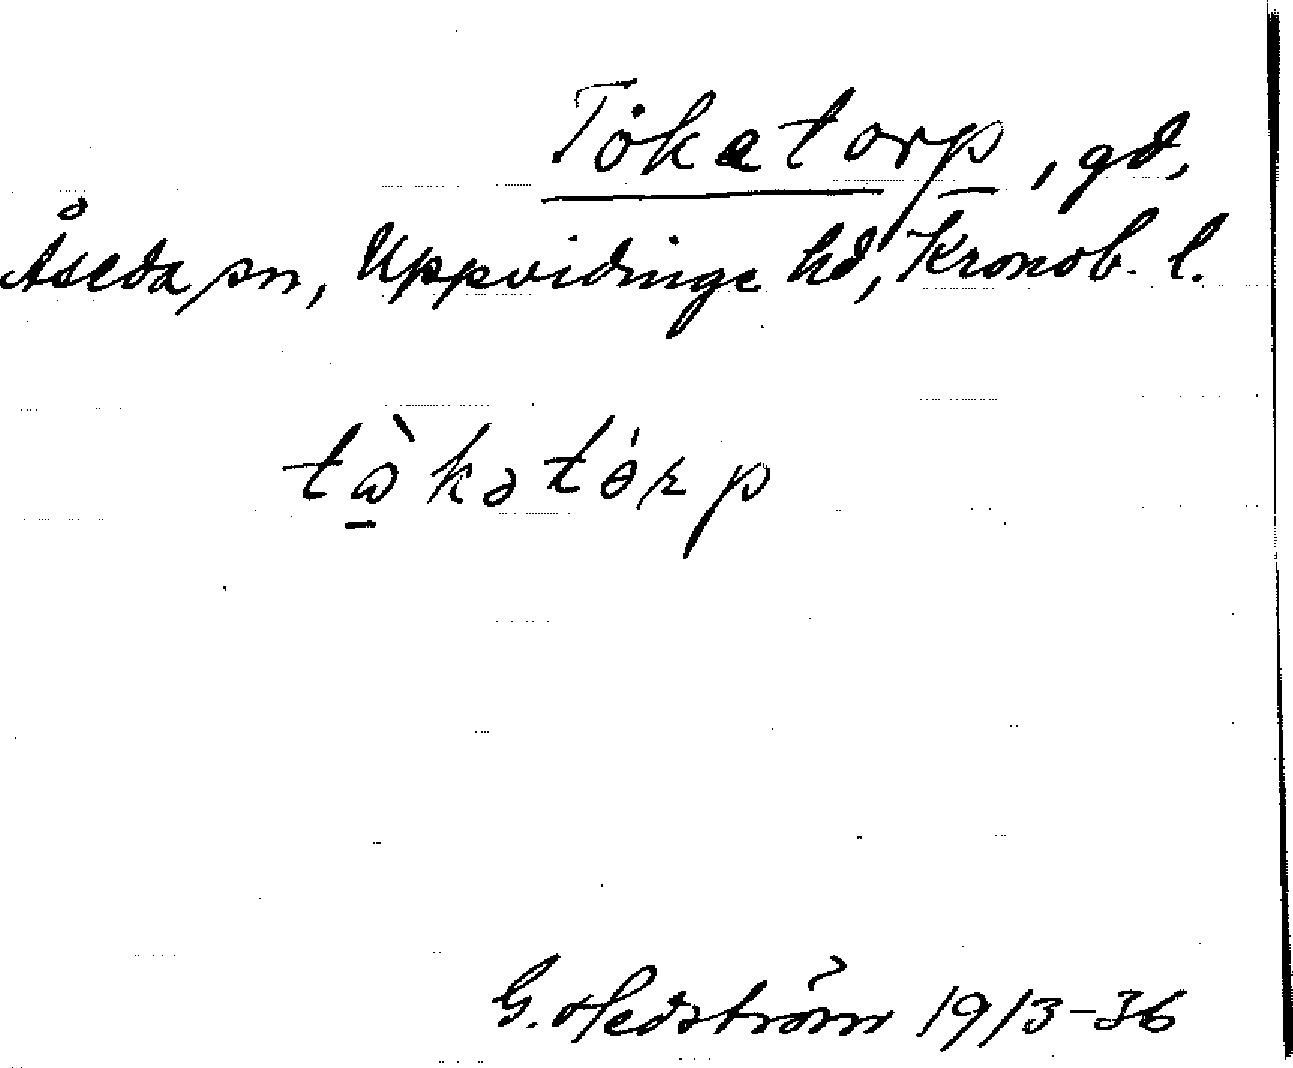 Tökatorp, gd,
Åseda sn, Uppvidinge hd, Kronob. l.
tὼ̲kətórp
G. Hedström 19/3-36